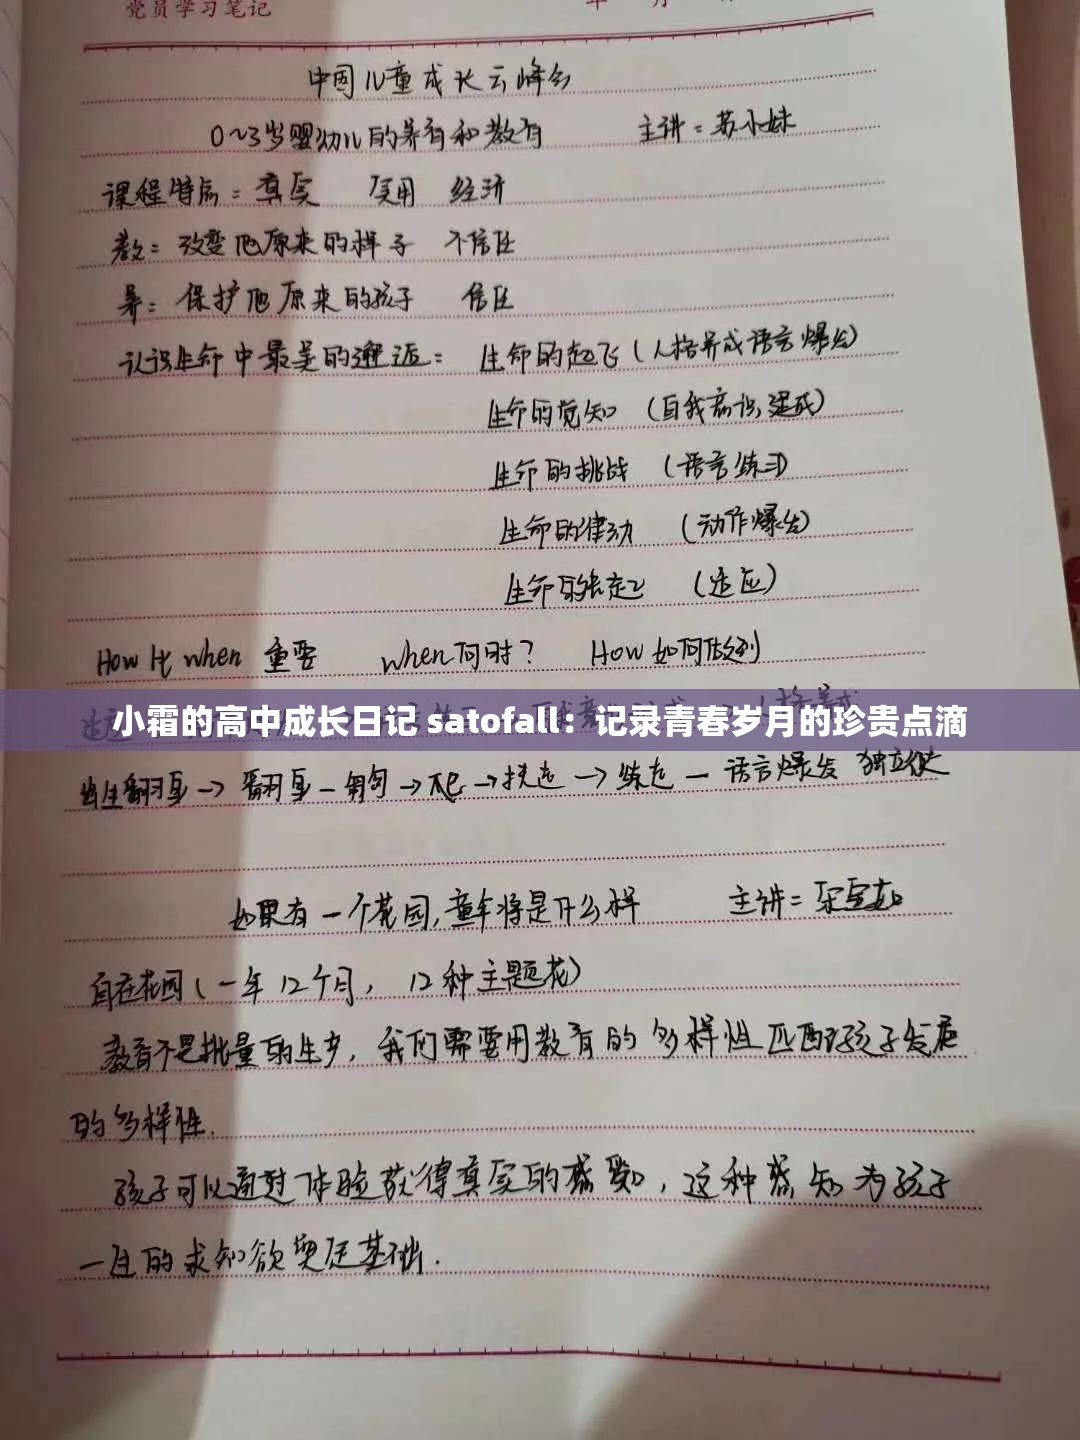 党员学习笔记 年 月
中国儿童成长云峰会
0~3岁婴幼儿的养育和教育 主讲：苏小妹
课程特点：真实 实用 经济
教：改变他原来的样子 不信任
养：保护他原来的孩子 信任
认识生命中最美的邂逅：生命的起飞（人格养成语言爆发）
生命的觉知（自我意识建成）
生命的挑战（语言练习）
生命的律动（动作爆发）
生命的 （适应）
How比when 重要 when何时？ How如何做到
小霜的高中成长日记 satofall：记录青春岁月的珍贵点滴
翻身→翻身－匍匐→爬→扶走→练走－语言爆发 独立
如果有一个花园,童年将是什么样 主讲：
自在花园（一年12个月，12种主题花）
教育不是批量的生产，我们需要用教育的多样性匹配孩子发展
的多样性.
孩子可以通过体验获得真实的感知，这种感知为孩子
一生的求知欲奠定基础.